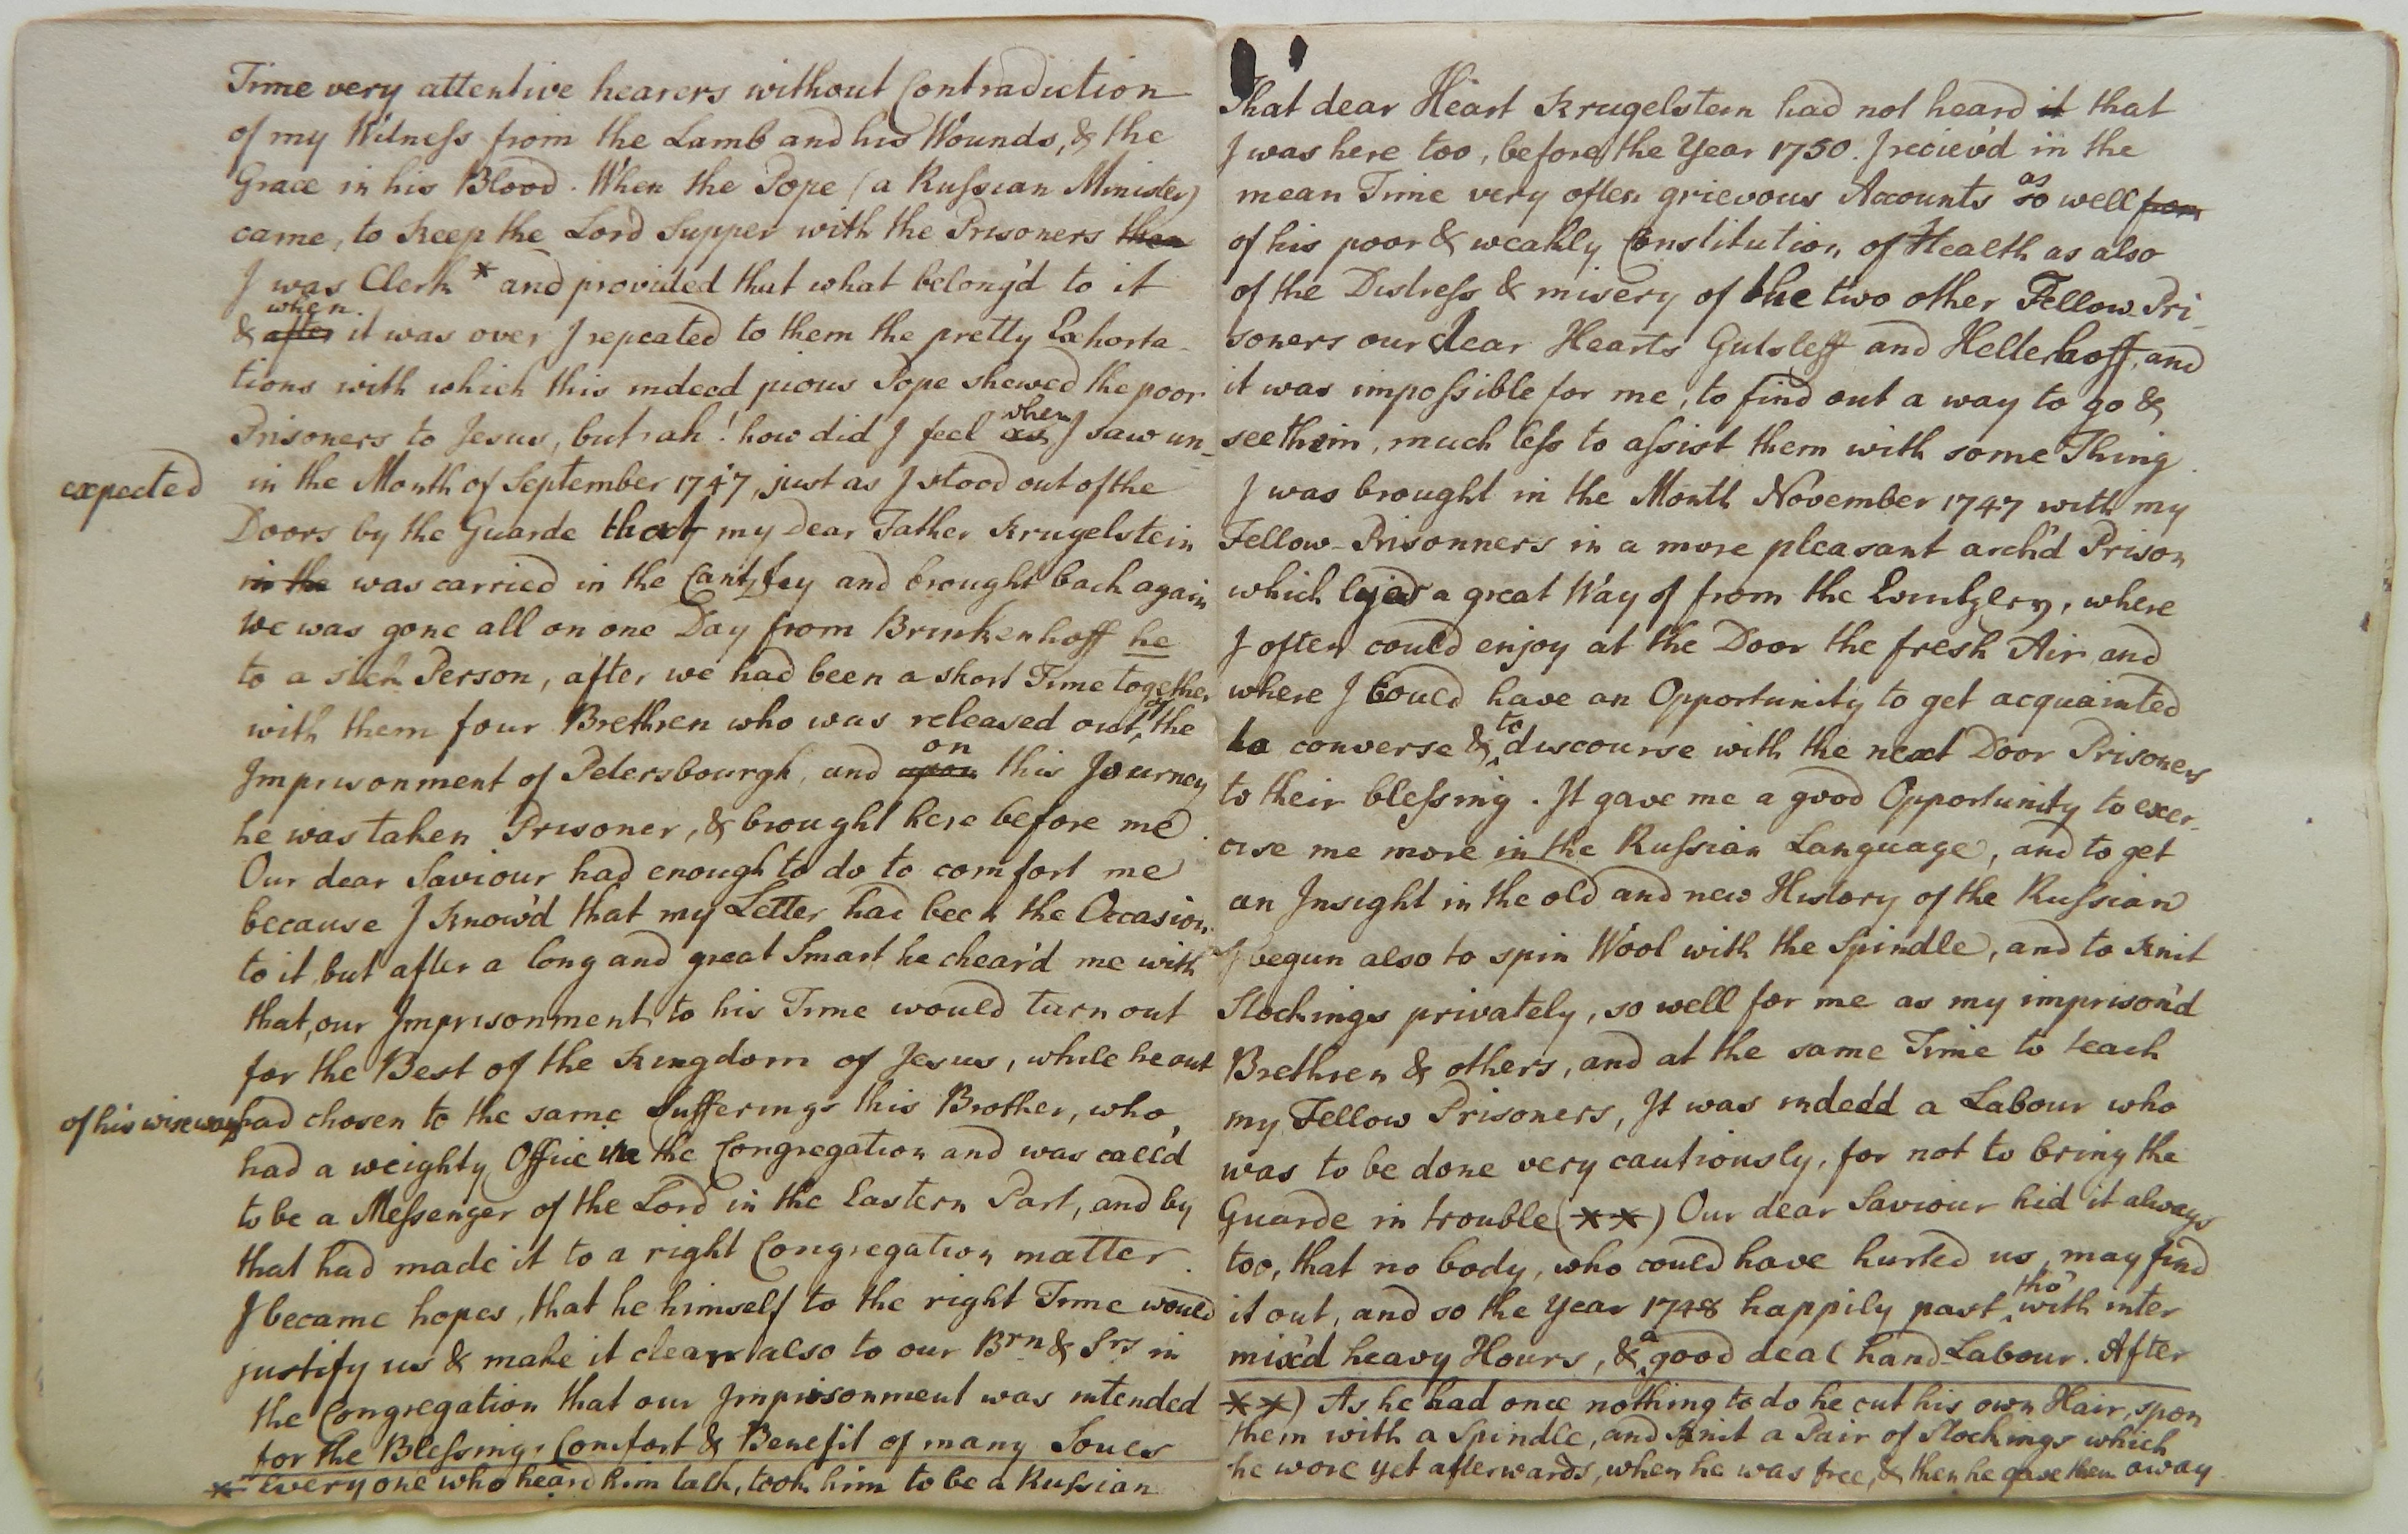 Time very attentive hearers without Contradiction
of my Witness from the Lamb and his Wounds, & the
Grace in his Blood. When the Pope (a Russian Minister)
came, to keep the Lord Supper with the Prisoners then
I was Clerk * and provided that what belong'd to it
when.
& after it was over I repeated to them the pretty Exhorta-
tions with which this indeed pious Pope shewed the poor
Prisoners to Jesus, but ah! how did I feel as when I saw un-
expected in the Month of September 1747, just as I stood out of the
Doors by the Guarde that my Dear Father Krugelstein
in the was carried in the Cantzley and brought back again
We was gone all on one Day from Brinkenhoff he
to a sick Person, after we had been a short Time together
with them four Brethren who was released out of the
Imprisonment of Petersbourgh, and upon on this Journey
he was taken Prisoner, & brought here before me.
Our dear Saviour had enough to do to comfort me
because I know'd that my Letter had been the Occasion
to it but after a long and great Smart he chear'd me with
that, our Imprisonment to his Time would turn out
for the Best of the Kingdom of Jesus, while he out
of his wise ways had chosen to the same Sufferings this Brother, who,
had a weighty Office in the Congregation and was call'd
to be a Messenger of the Lord in the Eastern Part, and by
that had made it to a right Congregation matter.
I became hopes, that he himself to the right Time would
justify us & make it clear also to our Brn & Srs in
the Congregation that our Imprisonment was intended
for the Blessing, Comfort & Benefit of many Souls
* Every one who heard him talk, took him to be a Russian
That dear Heart Krugelstein had not heard it that
I was here too, before the Year 1750. I reciev'd in the
mean Time very often grievous Accounts so as well from
of his poor & weakly Constitution of Health as also
of the Distress & misery of the two other Fellow Pri-
soners our dear Hearts Gutsleff and Hellerhoff, and
it was impossible for me, to find out a way to go &
see them, much less to assist them with some Thing.
I was brought in the Month November 1747 with my
Fellow-Prisonners in a more pleasant arch'd Prison
which lyed a great Way of from the , where
I often could enjoy at the Door the fresh Air and
where I could have an Opportunity to get acquainted
to converse & to discourse with the next Door Prisoners
to their blessing. It gave me a good Opportunity to exer-
cise me more in the Russian Language, and to get
an Insight in the old and new History of the Russian
I begun also to spin Wool with the Spindle, and to Knit
Stockings privately, so well for me as my imprison'd
Brethren & others, and at the same Time to teach
my Fellow Prisoners, It was indedd a Labour who
was to be done very cautiously, for not to bring the
Guarde in trouble (**) Our dear Saviour hid it always
too, that no body, who could have hurted us, may find
it out, and so the Year 1748 happily past, tho' with inter
mix'd heavy Hours, & a good deal hand-Labour. After
**) As he had once nothing to do he cut his own Hair, spon
them with a Spindle, and Knit a Pair of Stockings which
he wore yet afterwards, when he was free, & then he gave them away